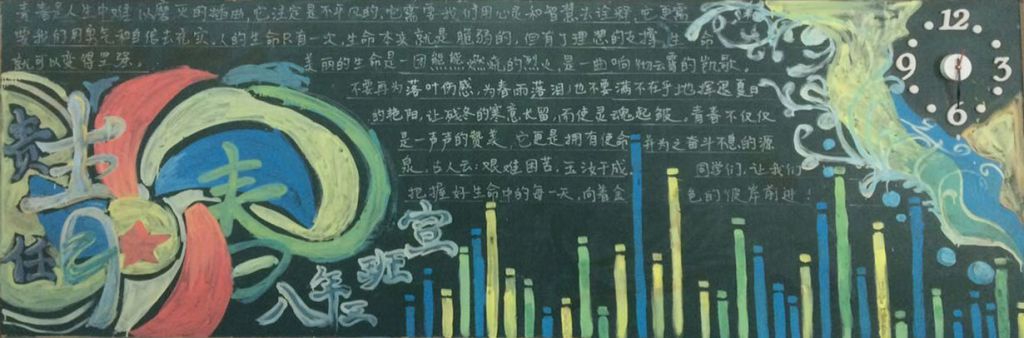 青春是人生中难以磨灭的插曲，它注定是不平凡的，它需要我们用心灵和智慧去诠释，它更需
要我们用勇气和自信去充实。人的生命只有一次，生命本来就是脆弱的，但有了理想的支撑，生命
就可以变得坚强。美丽的生命是一团熊熊燃烧的烈火，是一曲响彻云霄的颂歌。
不要再为落叶伤感，为春雨落泪；也不要满不在乎地挥退夏日
的艳阳，让残冬的寒意长留，而使灵魂起皱。青春不仅仅
是一声声的赞美，它更是拥有使命并为之奋斗不息的源
泉。古人云：艰难困苦，玉汝于成。同学们，让我们
把握好生命中的每一天，向着金色的彼岸前进！
责任
未来
八年二班宣
12
9
3
6